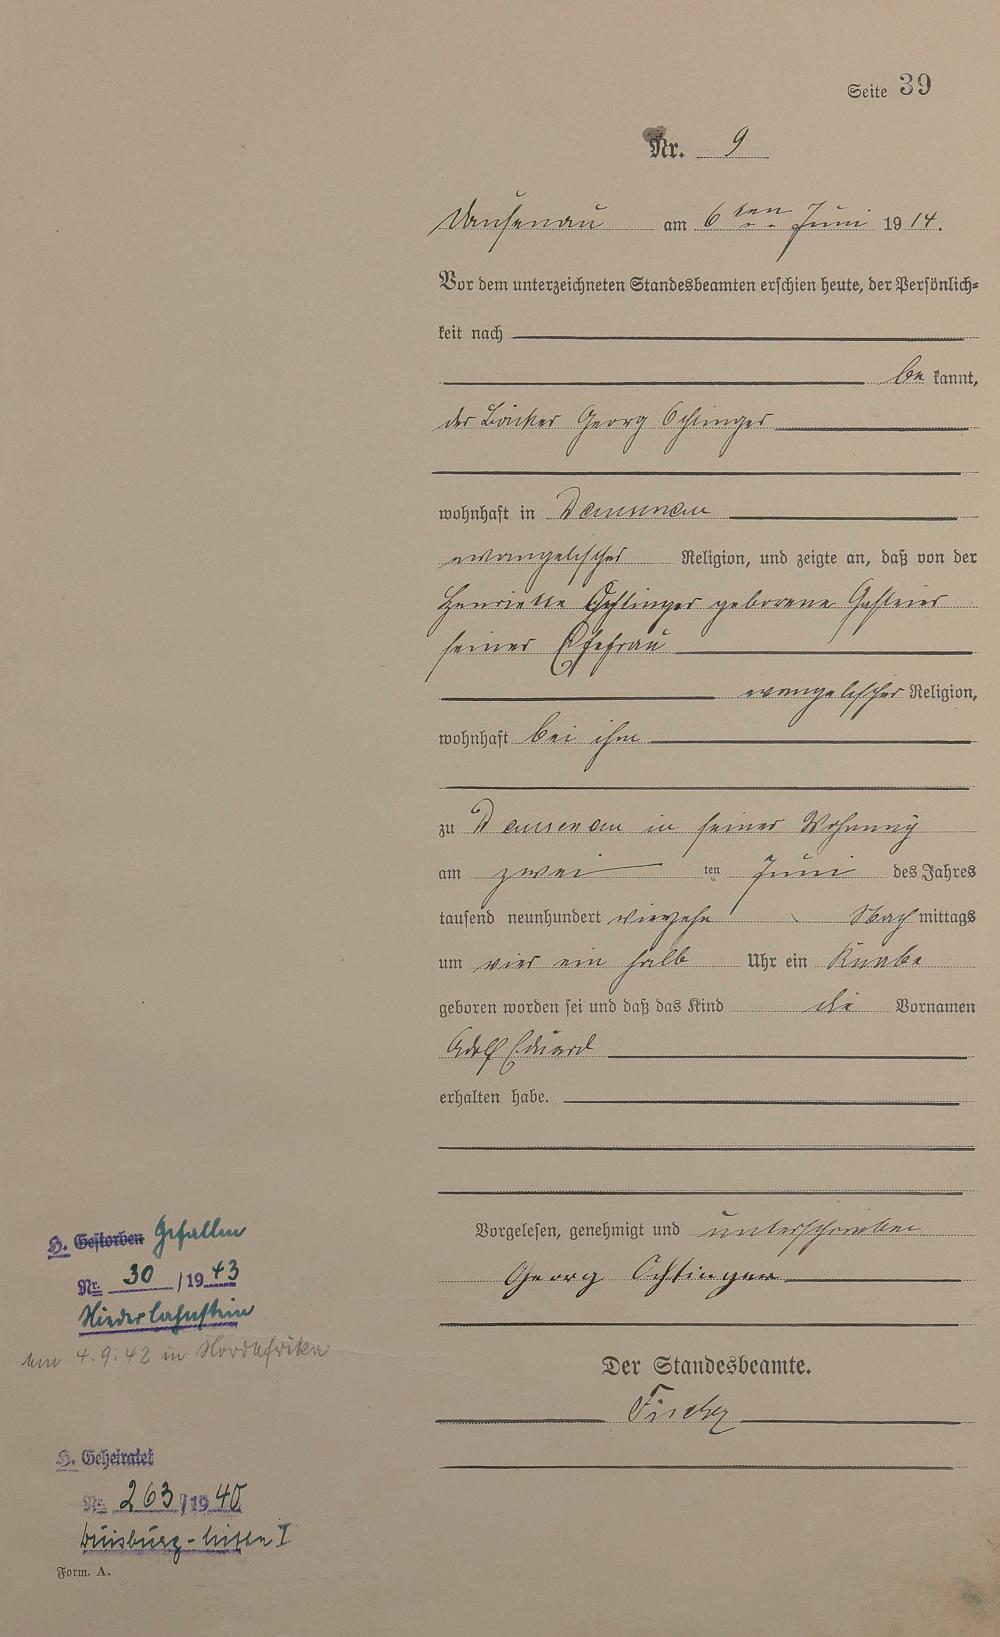 Seite 39
Nr. 9
Dausenau am 6ten Juni 1914.
Vor dem unterzeichneten Standesbeamten erschien heute, der Persönlich=
keit nach
be kannt,
der Bäcker Georg
wohnhaft in Dausenau
evangelischer Religion, und zeigte an, daß von der
Henriette geborene
seiner Ehefrau
evangelischer Religion,
wohnhaft bei ihm
zu Dausenau in seiner Wohnung
am zwei ten Juni des Jahres
tausend neunhundert vierzehn Nachmittags
um vier ein halb Uhr ein Knabe
geboren worden sei und daß das Kind die Vornamen
Adolf Eduard
erhalten habe.
Vorgelesen, genehmigt und unterschrieben
Georg
Der Standesbeamte.
Fischer
H. Gestorben Gefallen
Nr. 30 / 1943
Niederlahnstein
am 4.9.42 in Nordafrika
H. Geheiratet
Nr. 263/1940
Duisburg-Mitte I
Form. A.